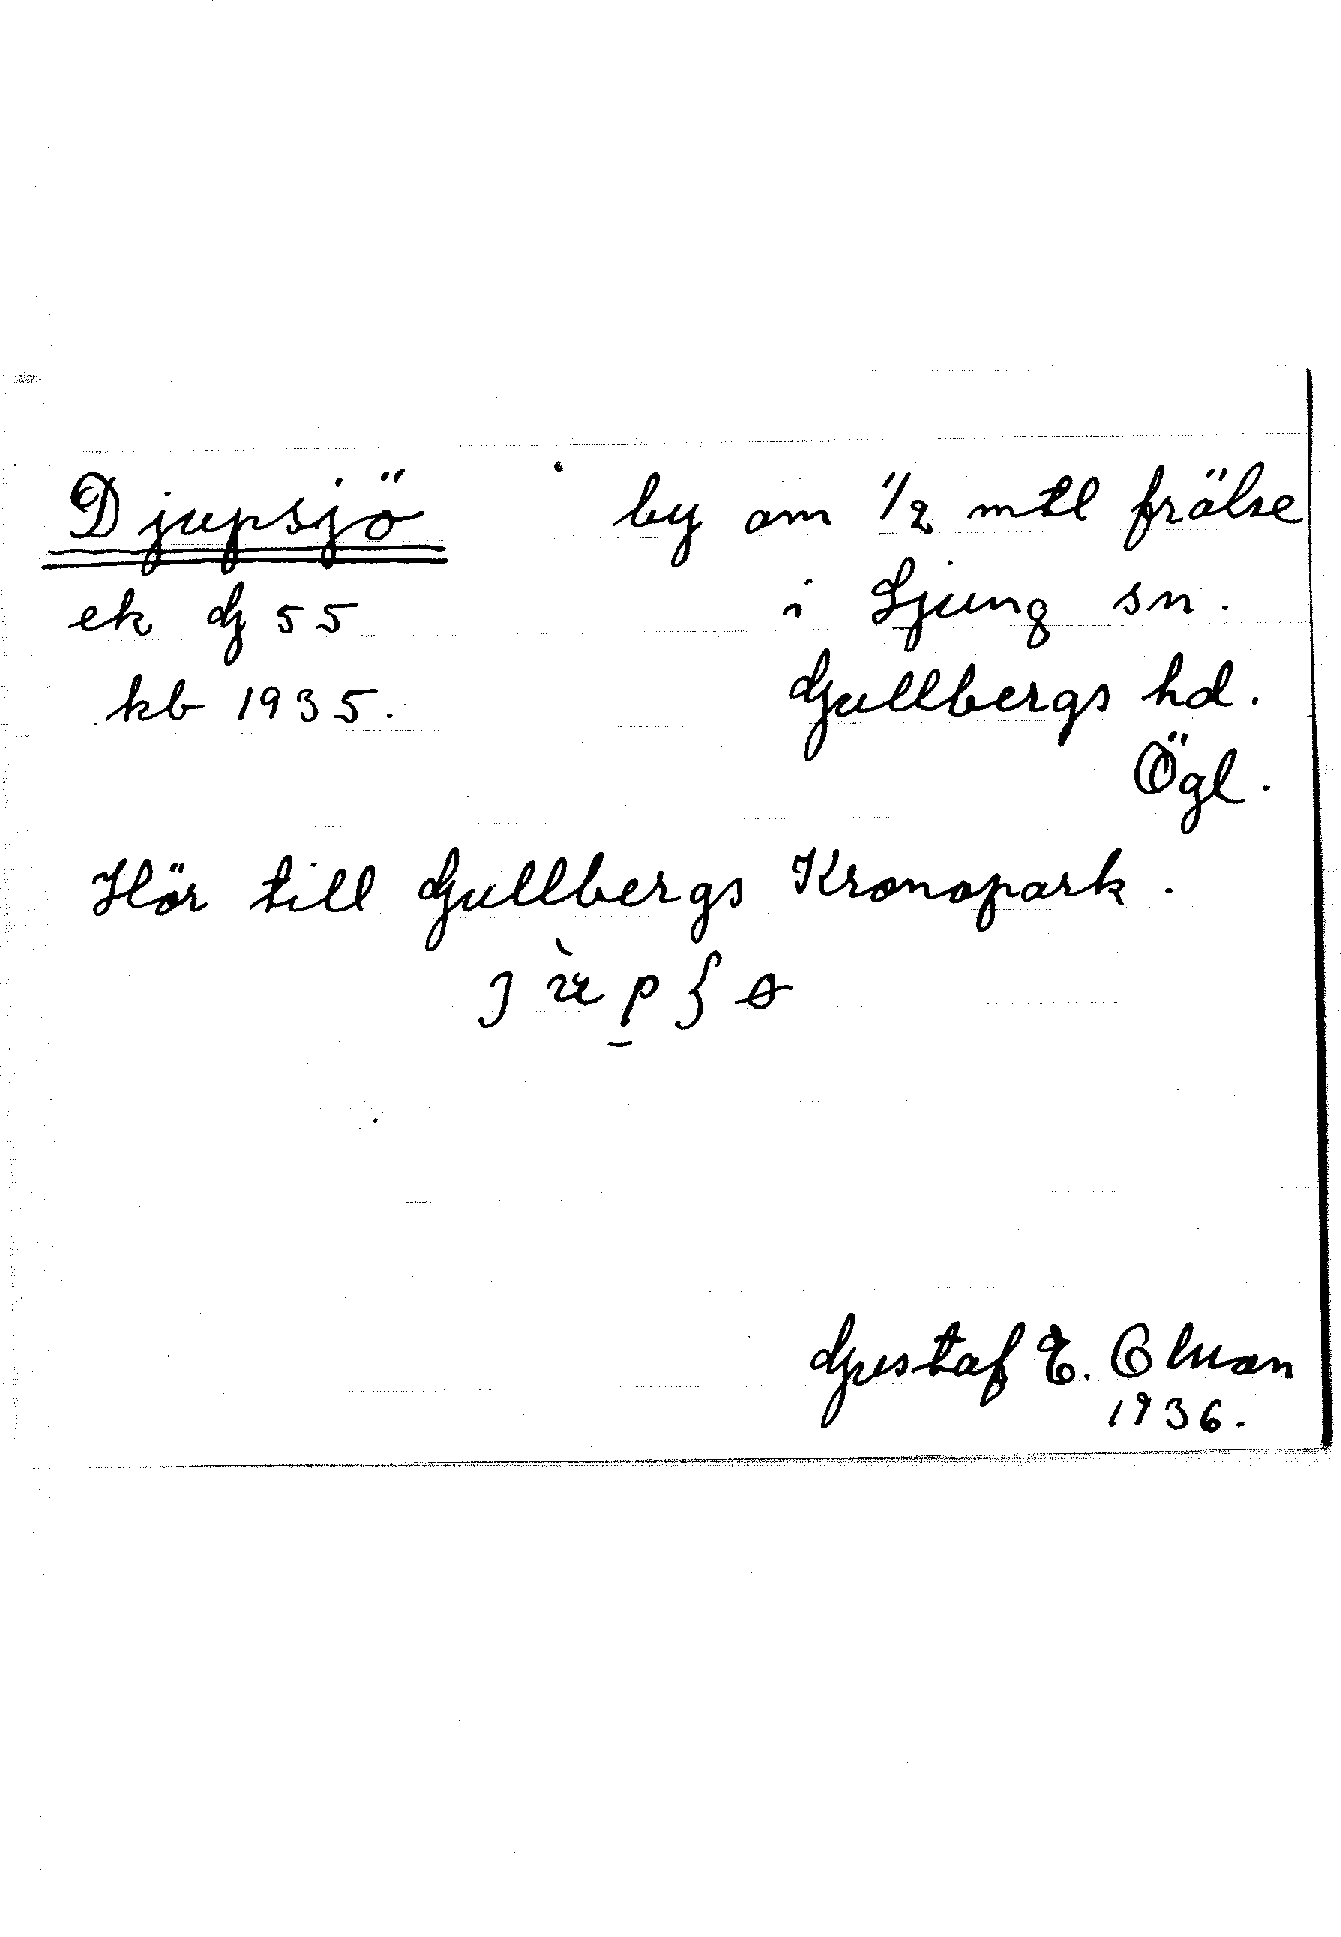 Djupsjö by om 1/2 mtl frälse
ek dj 55 i Ljung sn.
kb 1935. Gullbergs hd.
Ögl.
Hör till Gullbergs Kronopark.
Gustaf E.
1936.